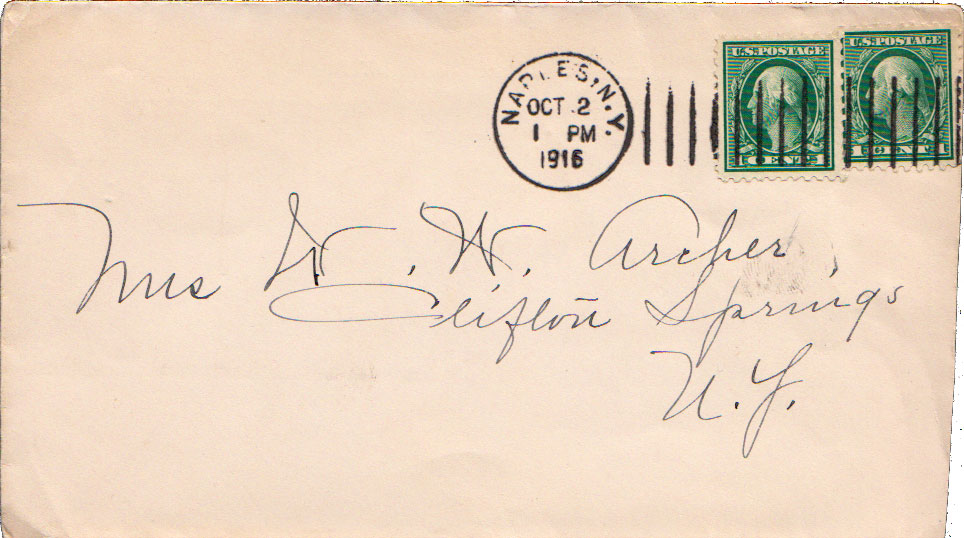 U.S. POSTAGE
1 CENTS 1
U.S. POSTAGE
1 CENT 1
NAPLES, N.Y.
OCT 2
1 PM
1916
Mrs W. W. Archer,
Clifton Springs
N.Y.